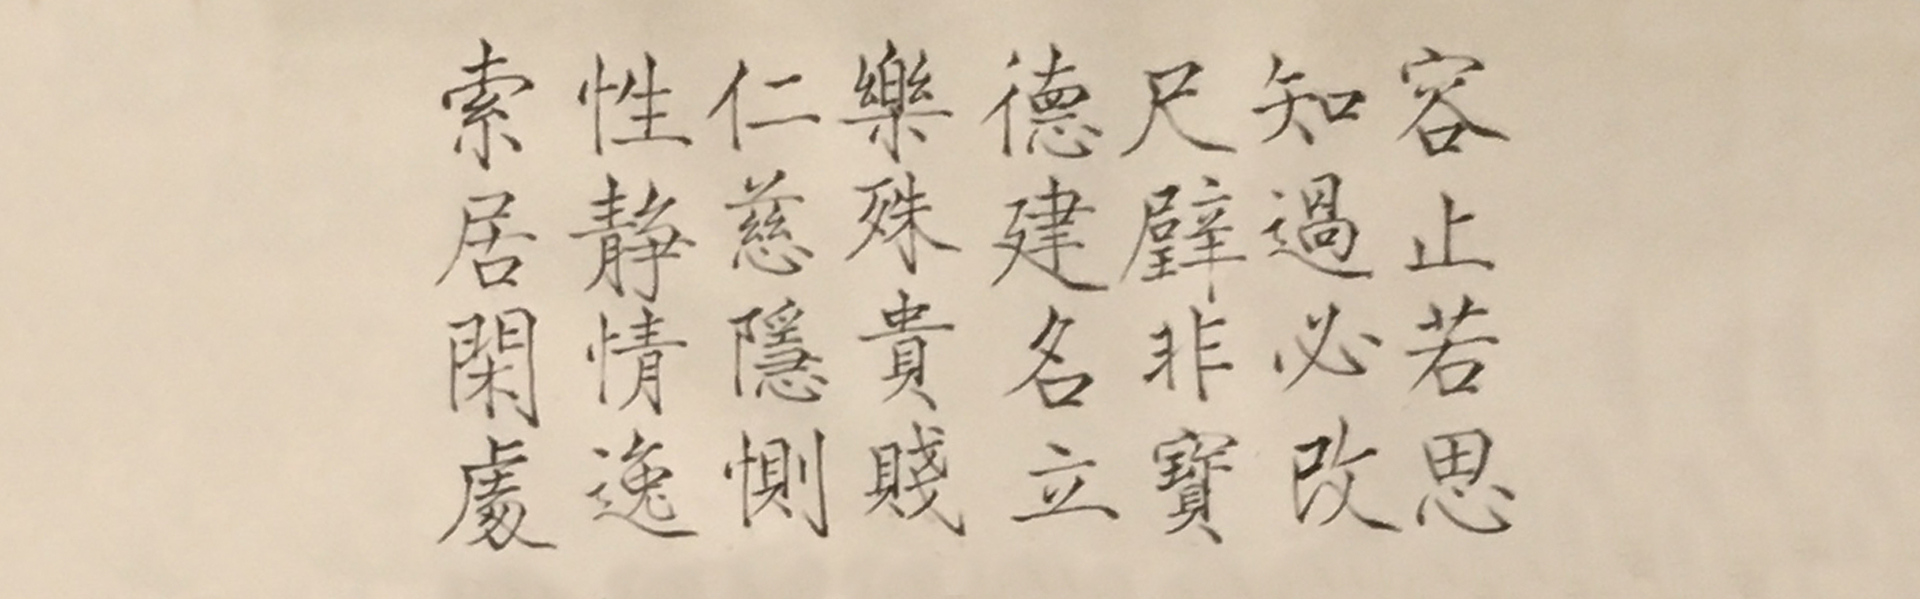 容止若思
知過必改
尺璧非寶
德建名立
樂殊貴賤
仁慈隱惻
性静情逸
索居閑處